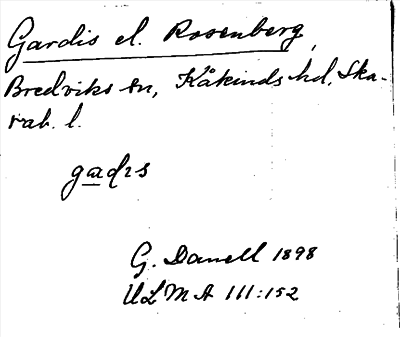 Gardis el. Rosenberg,
Bredviks sn, Kåkinds hd, Ska-
rab. l.
gadis
G. Danell 1898
ULMA 111:152